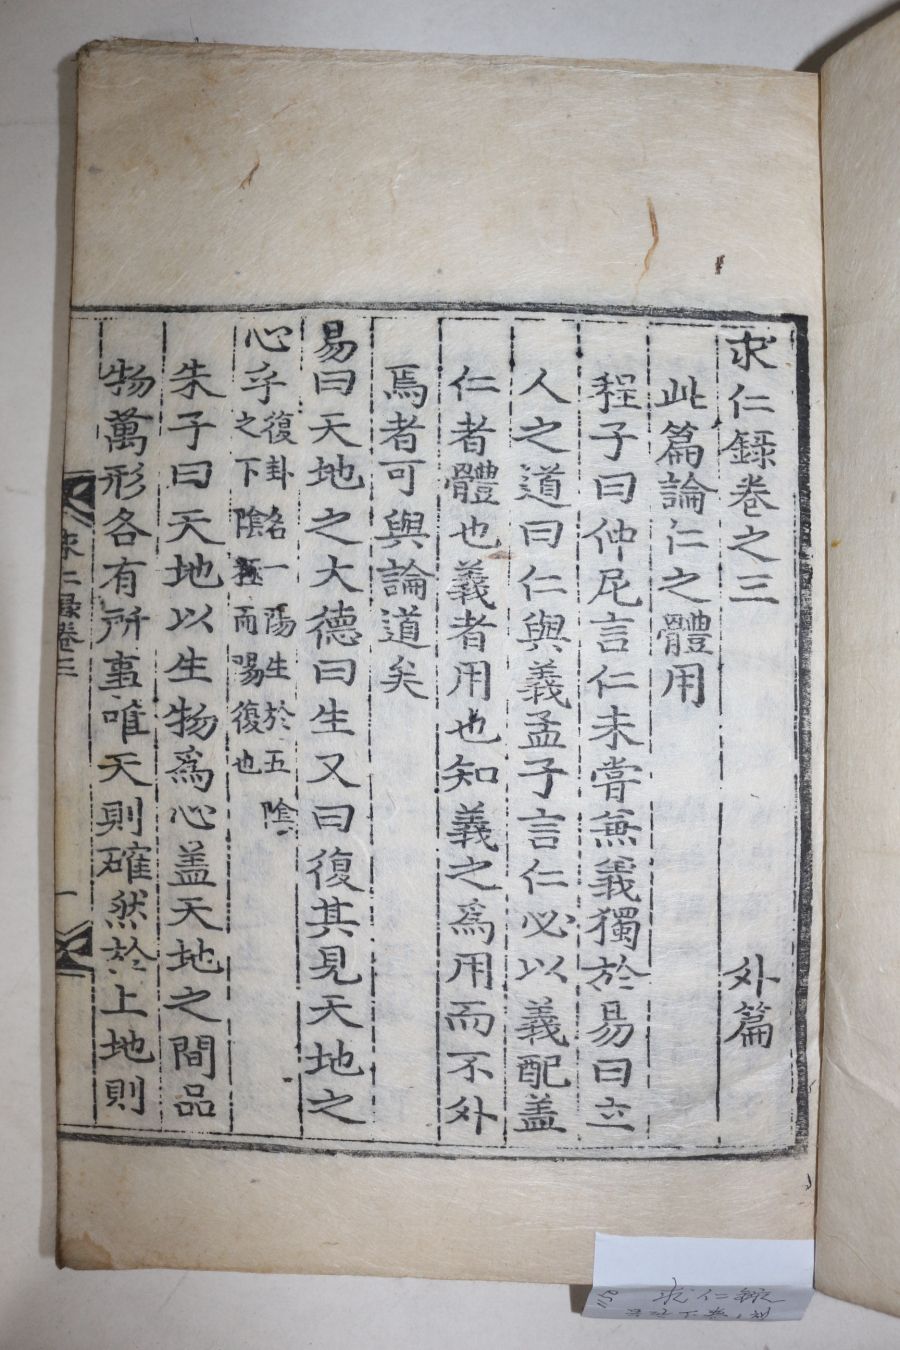 求仁録卷之三 外篇
此篇論仁之體用
程子曰仲尼言仁未嘗兼義獨於易曰立
人之道曰仁與義孟子言仁必以義配盖
仁者體也義者用也知義之爲用而不外
焉者可與論道矣
易曰天地之大德曰生又曰復其見天地之
心乎復卦名一陽生於五陰
之下陰極而陽復也
朱子曰天地以生物爲心盖天地之間品
物萬形各有所事唯天則確然於上地則
求仁錄卷三
一
求仁錄